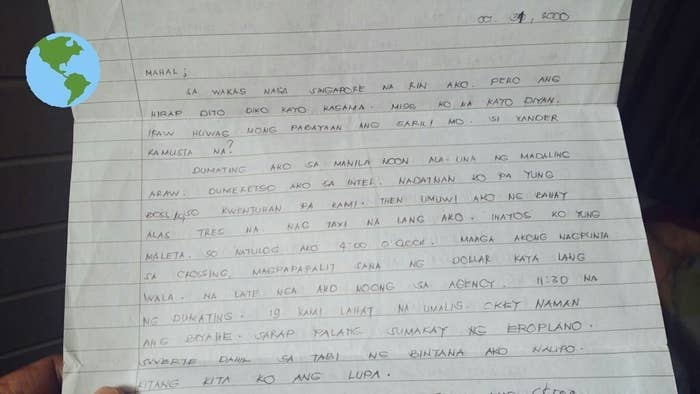 OCT. 31, 2000
MAHAL ;
SA WAKAS NASA SINGAPORE NA RIN AKO. PERO ANG
HIRAP DITO DIKO KAYO KASAMA. MISS KO NA KAYO DIYAN.
IKAW HUWAG MONG PABAYAAN ANG SARILI MO. SI XANDER
KAMUSTA NA?
DUMATING AKO SA MANILA NOON ALA-UNA NG MADALING
ARAW. DUMERETSO AKO SA INTEL. NADATNAN KO PA YUNG
SO KWENTUHAN PA KAMI. THEN UMUWI AKO NG BAHAY
ALAS TRES NA. NAG TAXI NA LANG AKO. INAYOS KO YUNG
MALETA. SO NATULOG AKO 4:00 O'CLOCK. MAAGA AKONG NAGPUNTA
SA CROSSING, MAGPAPAPALIT SANA NG DOLLAR KAYA LANG
WALA. NA LATE NGA AKO NOONG SA AGENCY. 11:30 NA
NG DUMATING. 19 KAMI LAHAT NA UMALIS. OKEY NAMAN
ANG BIYAHE. SARAP PALANG SUMAKAY NG EROPLANO.
SWERTE DAHIL SA TABI NG BINTANA AKO NAUPO.
KITANG KITA KO ANG LUPA.